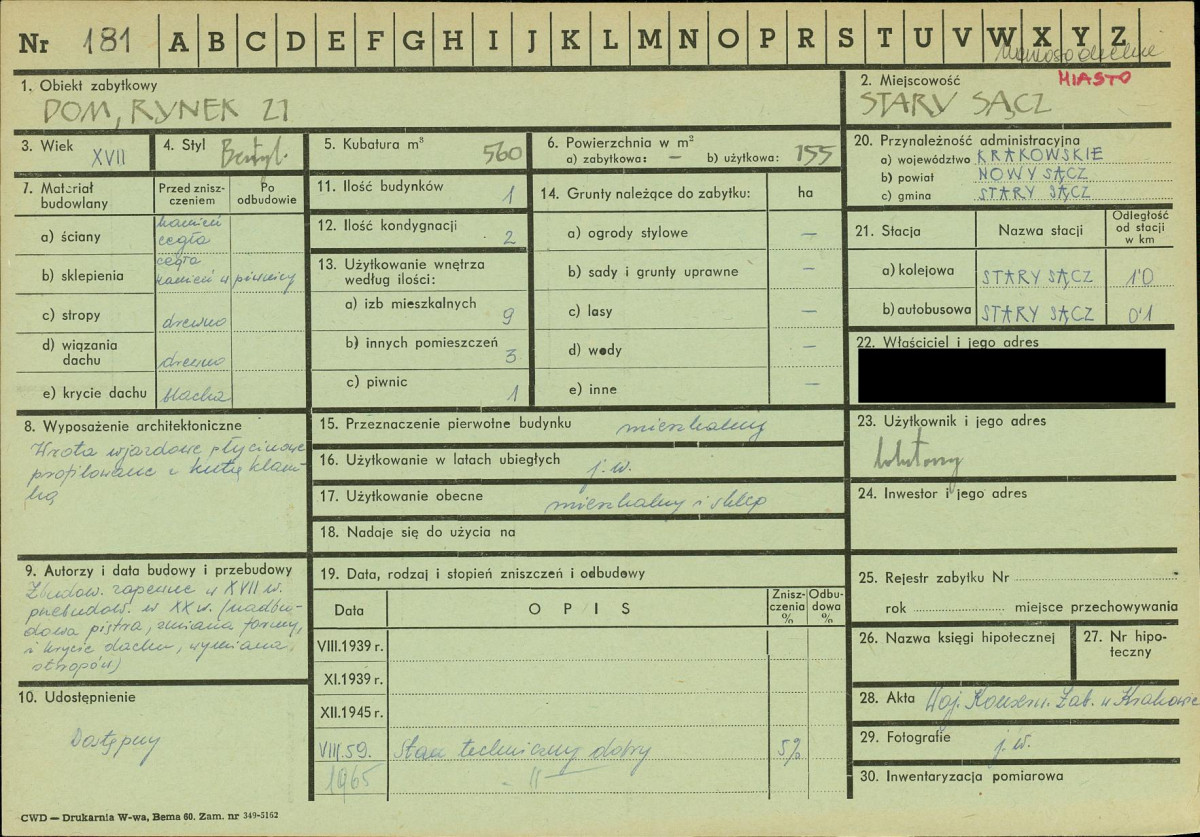 Nr 181 A B C D E F G H I J K L M N O P R S T U V W X Y Z
MIASTO
1. Obiekt zabytkowy
DOM, RYNEK 21
2. Miejscowość
STARY SĄCZ
3. Wiek XVII
4. Styl Bezstyl.
5. Kubatura m³ 560
6. Powierzchnia w m²
a) zabytkowa: — b) użytkowa: 155
7. Materiał budowlany
Przed zniszczeniem
Po odbudowie
a) ściany kamień cegła
b) sklepienia cegła kamień w piwnicy
c) stropy drewno
d) wiązania dachu drewno
e) krycie dachu blacha
8. Wyposażenie architektoniczne
Wrota wjazdowe płycinowe
profilowane z kutą klam
ką
9. Autorzy i data budowy i przebudowy
Zbudow. zapewne w XVII w.
przebudow. w XX w. (nadbu-
dowa piętra, zmiana formy,
i krycie dachu, wymiana
stropów)
10. Udostępnienie
Dostępny
11. Ilość budynków 1
12. Ilość kondygnacji 2
13. Użytkowanie wnętrza
według ilości:
a) izb mieszkalnych 9
b) innych pomieszczeń 3
c) piwnic 1
14. Grunty należące do zabytku: ha
a) ogrody stylowe —
b) sady i grunty uprawne —
c) lasy —
d) wody —
e) inne —
15. Przeznaczenie pierwotne budynku mieszkalny
16. Użytkowanie w latach ubiegłych j. w.
17. Użytkowanie obecne mieszkalny i sklep
18. Nadaje się do użycia na
19. Data, rodzaj i stopień zniszczeń i odbudowy
Data OPIS Zniszczenia % Odbudowa %
VIII.1939 r.
XI.1939 r.
XII.1945 r.
VIII.59. Stan techniczny dobry 5%
1965 - 11 -
20. Przynależność administracyjna
a) województwo KRAKOWSKIE
b) powiat NOWY SĄCZ
c) gmina STARY SĄCZ
21. Stacja Nazwa stacji Odległość od stacji w km
a) kolejowa STARY SĄCZ 1'0
b) autobusowa STARY SĄCZ 0'1
22. Właściciel i jego adres
23. Użytkownik i jego adres
24. Inwestor i jego adres
25. Rejestr zabytku Nr
rok miejsce przechowywania
26. Nazwa księgi hipotecznej
27. Nr hipoteczny
28. Akta Woj. Konserw. Zab. w Krakowie
29. Fotografie j. w.
30. Inwentaryzacja pomiarowa
CWD — Drukarnia W-wa, Bema 60. Zam. nr 349-5162